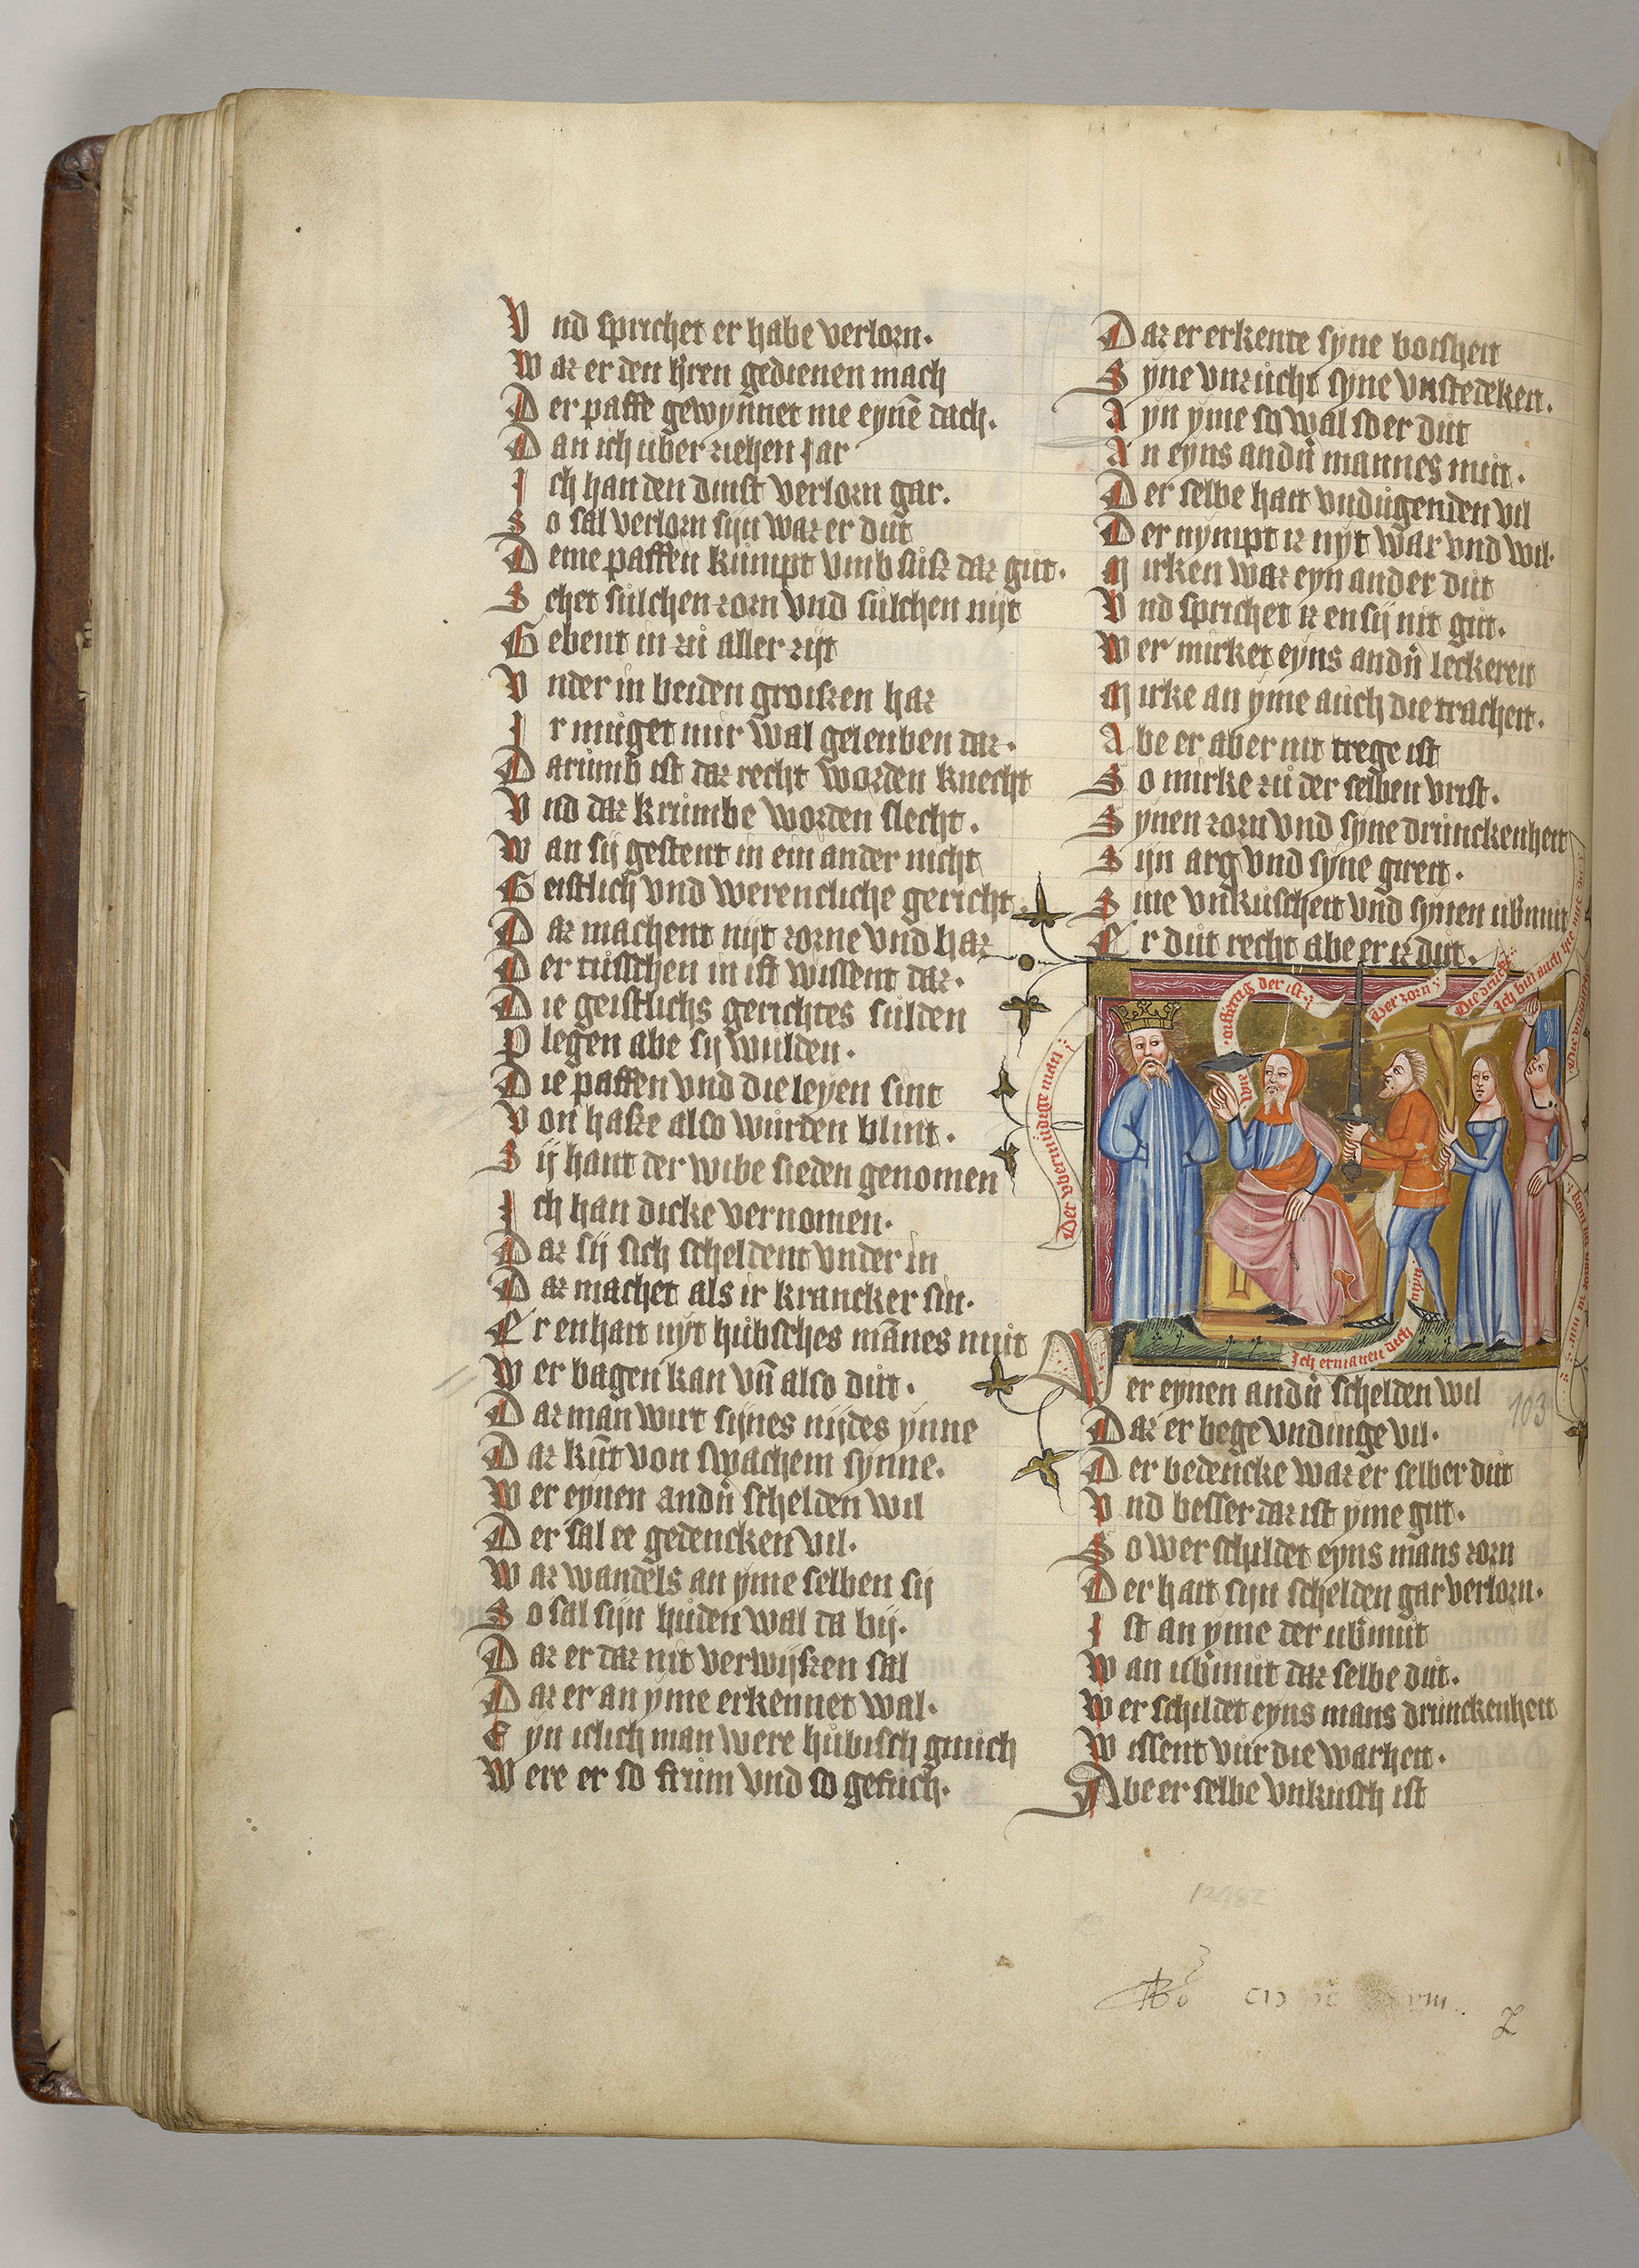 Vnd sprichet er habe verlorn.
War er den h̛ren gedienen mach
Der paffe gewynnet nie eynē dach.
Dan ich uber ziehen jar
Ich han den dinst verlorn gar.
So sal verlorn sijn waz er dut
Deme paffen kumpt vmb suß daz gut.
Sehet sulchen zorn vnd sulchen nijt
Gebent in zu aller zijt
Vnder in beiden groißen haz
Ir muget mir wal geleuben daz.
Darumb ist daz recht worden knecht
Vnd daz krumbe worden slecht.
Wan sij gestent in ein ander nicht
Geistlich vnd werencliche gericht.
Daz machent nijt zorne vnd haz
Der tusschen in ist wissent daz.
Die geistlichs gerichtes sulden
Plegen abe sij wulden.
Die paffen vnd die leyen sint
Von haße also wurden blint.
Sij hant der wibe sieden genomen
Ich han dicke vernomen.
Daz sij sich scheldent vnder in
Daz machet als ir krancker sin.
Er enhait nyt hubsches mānes muit
Wer bagen kan vn̄ also dut.
Daz man wirt sijnes nijdes ynne
Daz kūt von swachem synne.
Wer eynen andn̄ schelden wil
Der sal ee gedencken vil.
Waz wandels an yme selben sij
So sal sijn huden wal da bij.
Daz er daz nit verwijßen sal
Daz er an yme erkennet wal.
Eyn iclich man were hubisch gnuich
Were er so frum vnd so gefuch.
Daz er erkente syne boisheit
Syne vnzucht syne vnstedekeit.
Ayn yme so wal so er dut
An eyns andn̄ mannes mut.
Der selbe hait vndugenden vil
Der nympt iz nyt war vnd wil.
Mirken waz eyn ander dut
Vnd sprichet iz en sij nit gut.
Wer mirket eyns andn̄ leckereu
Mirke an yme auch die tracheit.
Abe er aber nit trege ist
So mirke zu der selben vrist.
Synen zorn vnd syne drunckenheit
Sijn arg vnd syne gireit.
Sine vnkuscheit vnd synen ub̄muit
Er dut recht abe er iz dut.
Der vbermudige man
der ist
wie
Der zorn
Ich bin auch hie mit
Ich ermanen dich
myn
Wer eynen andn̄ schelden wil
103
Daz er bege vndinge vil.
Der bedencke waz er selber dut
Vnd besser daz ist yme gut.
So wer schildet eyns mans zorn
Der hait sijn schelden gar verlorn.
Ist an yme der ub̄mut
Wan ub̄mut daz selbe dut.
Wer schildet eyns mans drunckenheit
Wissent vur die warheit.
Abe er selbe vnkusch ist